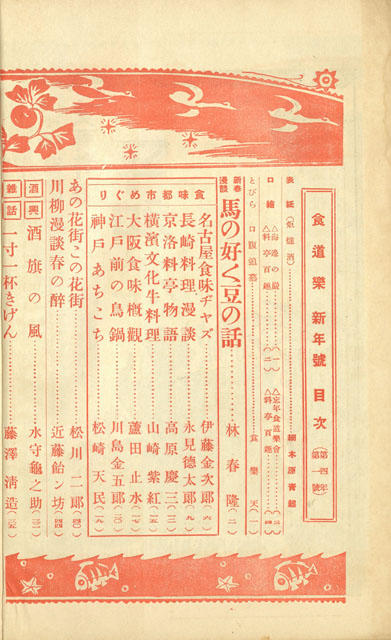 食道樂新年號 目次 (第四年第一號)
表紙(炬燵酒)……細木原青起
口繪
△料亭百趣……(二)
△忘年食道樂會
△料亭百趣
とびら 口腹……食樂天(一)
新春漫談 馬の好く豆の話……林春隆(二)
食味都市めぐり
名古屋食味ヂヤズ……伊藤金次郎(六)
長崎料理漫談……永見德太郎(九)
京洛料亭物語……高原慶三(一二)
橫濱文化牛料理……山崎紫紅(一五)
大阪食味概觀……蘆田止水(一七)
江戶前の鳥鍋……川島金五郎(二〇)
神戶あちこち……松崎天民(二九)
あの花街この花街……松川二郎(四〇)
川柳漫談春の醉……近藤飴ン坊(四四)
酒興 酒旗の風……水守龜之助(三二)
雜話 一寸一杯きげん……藤澤淸造(三五)